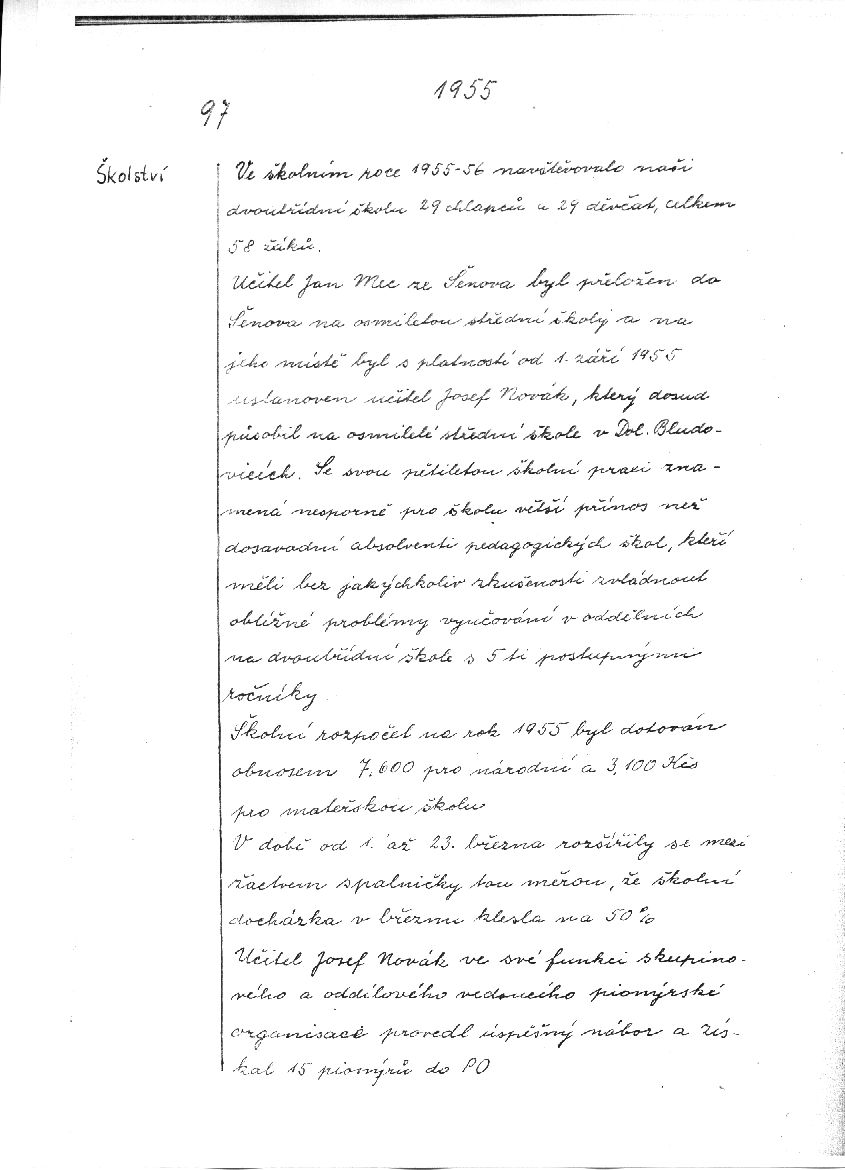 1955
97
Školství
Ve školním roce 1955-56 navštěvovalo naši
dvoutřídní školu 29 chlapců a 29 děvčat, celkem
58 žáků.
Učitel Jan Mec ze Šenova byl přeložen do
Šenova na osmiletou střední školy a na
jeho místě byl s platností od 1. září 1955
ustanoven učitel Josef Novák, který dosud
působil na osmileté střední škole v Dol. Bludo-
vicích. Se svou pětiletou školní praxí zna-
mená nesporně pro školu větší přínos než
dosavadní absolventi pedagogických škol, kteří
měli bez jakýchkoliv zkušeností zvládnout
obtížné problémy vyučování v odděleních
na dvoutřídní škole s 5ti postupnými
ročníky.
Školní rozpočet na rok 1955 byl dotován
obnosem 7,600 pro národní a 3,100 Kčs
pro mateřskou školu
V době od 1. až 23. března rozšířily se mezi
žactvem spalničky tou měrou, že školní
docházka v březnu klesla na 50%
Učitel Josef Novák ve své funkci skupino-
vého a oddílového vedoucího pionýrské
organisace provedl úspěšný nábor a zís-
kal 15 pionýrů do PO